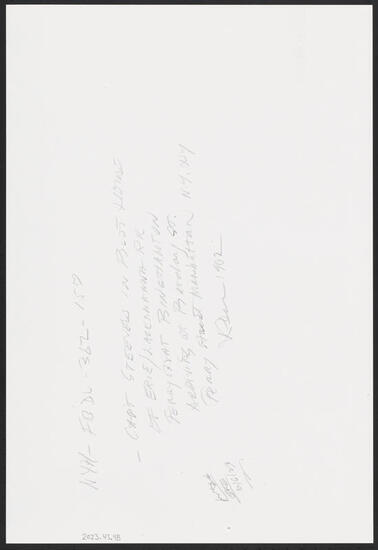 NYH-FBDL-362-157
- CAPT STEEVES IN PILOT HOUSE
OF ERIE/LACKAWANNA RR
FERRYBOAT BINGHAMTON
ARRIVING AT Barclay ST.
FERRY MANHATTAN NY, NY
1982
2023.41.48